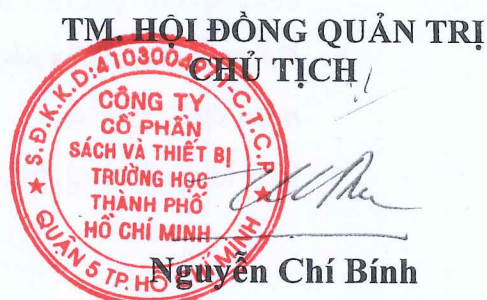 TM. HỘI ĐỒNG QUẢN TRỊ
CHỦ TỊCH
CÔNG TY
CỔ PHẦN
SÁCH VÀ THIẾT BỊ
TRƯỜNG HỌC
THÀNH PHỐ
HỒ CHÍ MINH
QUẬN 5 TP. HỒ CHÍ MINH
Nguyễn Chí Bính